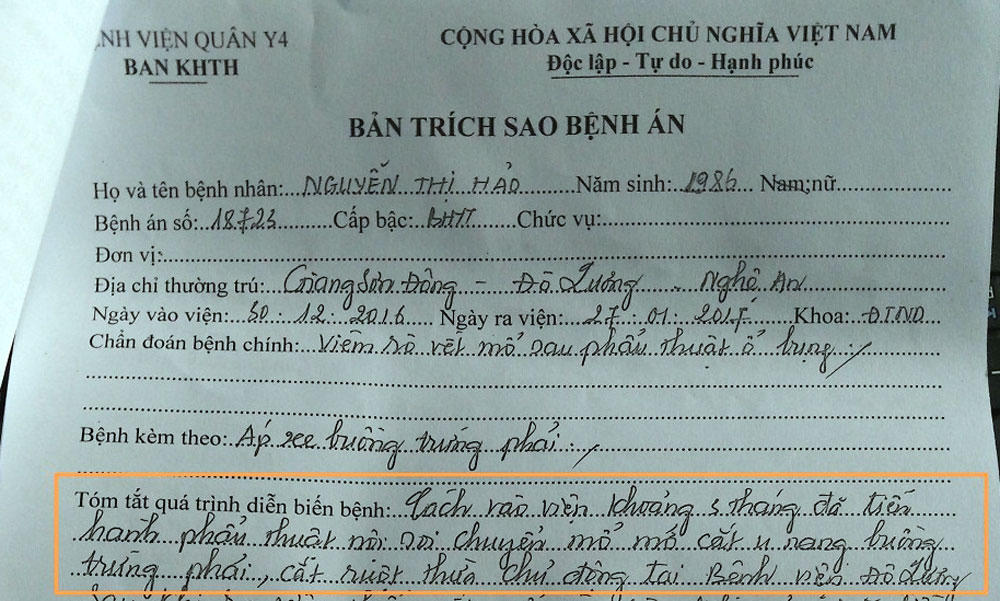 NH VIỆN QUÂN Y4
CỘNG HÒA XÃ HỘI CHỦ NGHĨA VIỆT NAM
BAN KHTH
Độc lập - Tự do - Hạnh phúc
BẢN TRÍCH SAO BỆNH ÁN
Họ và tên bệnh nhân:...NGUYỄN THỊ HẢO.........Năm sinh:..1986...Nam;nữ..................
Bệnh án số:..18723...........Cấp bậc:..BHTT......Chức vụ:..................
Đơn vị:..................
Địa chỉ thường trú:...Giang Sơn Đông - Đô Lương - Nghệ An
Ngày vào viện:.30.12.2016....Ngày ra viện:..27.01.2017.....Khoa:.ĐTND
Chẩn đoán bệnh chính:..Viêm rò vết mổ sau phẩu thuật ổ bụng./
Bệnh kèm theo:..Áp xe buồng trứng phải./
Tóm tắt quá trình diễn biến bệnh:..Cách vào viện khoảng 5 tháng đã tiến
hành phẩu thuật nội soi chuyển mổ mở cắt u nang buồng
trứng phải, cắt ruột thừa chủ động tại Bệnh viện Đô Lương